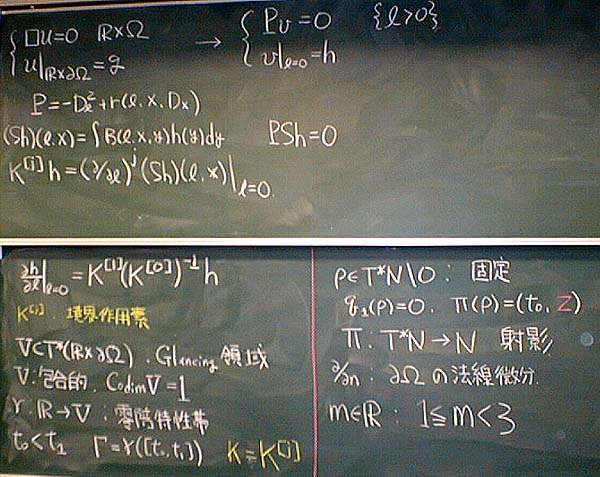 □u=0 ℝ×Ω → Pv=0 {l>0}
u|ℝ×∂Ω=g v|l=0=h
P=-Dl²+r(l,x,Dx)
(Sh)(l,x)=∫B(l,x,y)h(y)dy PSh=0
K[j]h=(∂/∂l)^j(Sh)(l,x)|l=0.
∂h/∂l|l=0=K[1](K[0])⁻¹h
K[j]:境界作用素
∇⊂T*(ℝ×∂Ω).Glancing領域
∇:包合的.Codim∇=1
γ:ℝ→∇:零陪特性帯
t₀<t₁ Γ=γ([t₀,t₁]) K=K[j]
ρ∈T*N\0:固定
π(ρ)=(t₀,Z)
π.T*N→N 射影
∂/∂n:∂Ωの法線微分.
m∈ℝ:1≦m<3